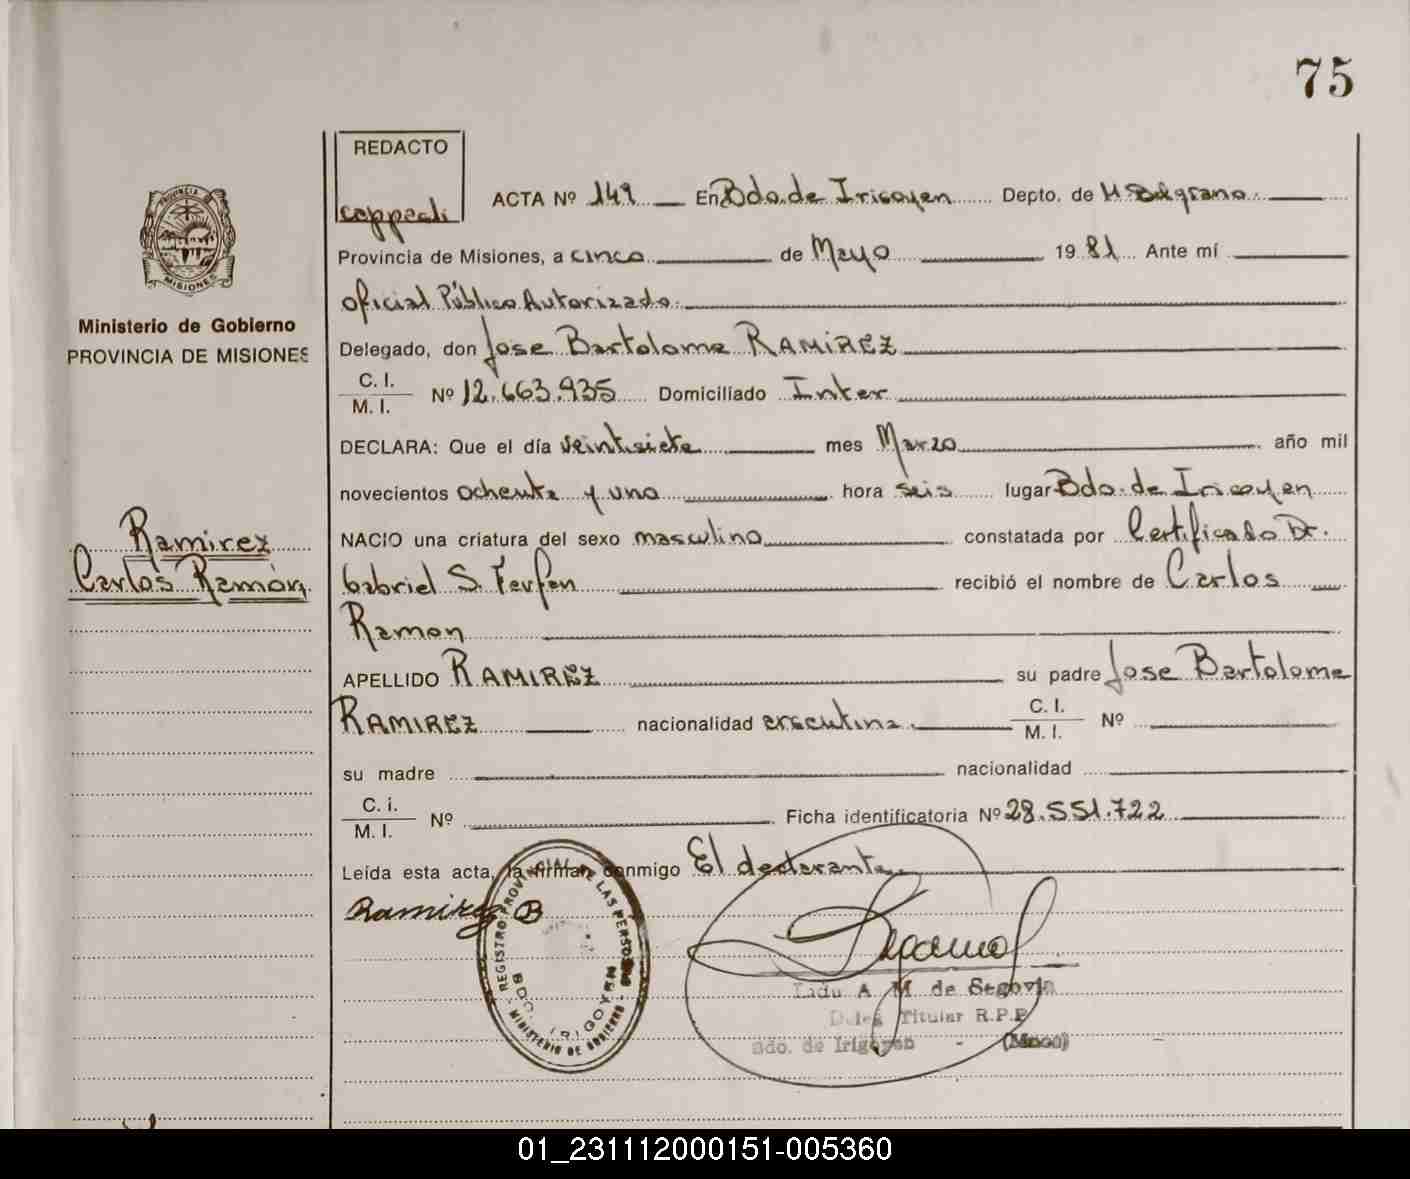 75
REDACTO
ACTA Nº 149 En Bdo. de Iricoyen Depto. de M. Belgrano.
Provincia de Misiones, a cinco de Mayo 1981 Ante mí
oficial Público Autorizado.
Ministerio de Gobierno
PROVINCIA DE MISIONES
Delegado, don Jose Bartolome RAMIREZ
C. I.
M. I. Nº 12.663.935 Domiciliado Inter
DECLARA: Que el día veintisiete mes Marzo año mil
novecientos ochenta y uno hora seis lugar Bdo. de Iricoyen
Ramirez
Carlos Ramón.
NACIO una criatura del sexo masculino constatada por Certificado Dr.
Gabriel S. recibió el nombre de Carlos
Ramon
APELLIDO RAMIREZ su padre Jose Bartolome
RAMIREZ nacionalidad C. I.
M. I. Nº
su madre nacionalidad
C. i.
M. I. Nº Ficha identificatoria Nº 28.551.722
Leída esta acta, la firman conmigo El declarante.
Ramirez B
REGISTRO PROVINCIAL DE LAS PERSONAS
BDO. IRIGOYEN
MINISTERIO DE GOBIERNO
A. M. de Segovia
Titular R.P.P
Bdo. de Irigoyen - (Mnes)
PROVINCIA DE
MISIONES
01_231112000151-005360